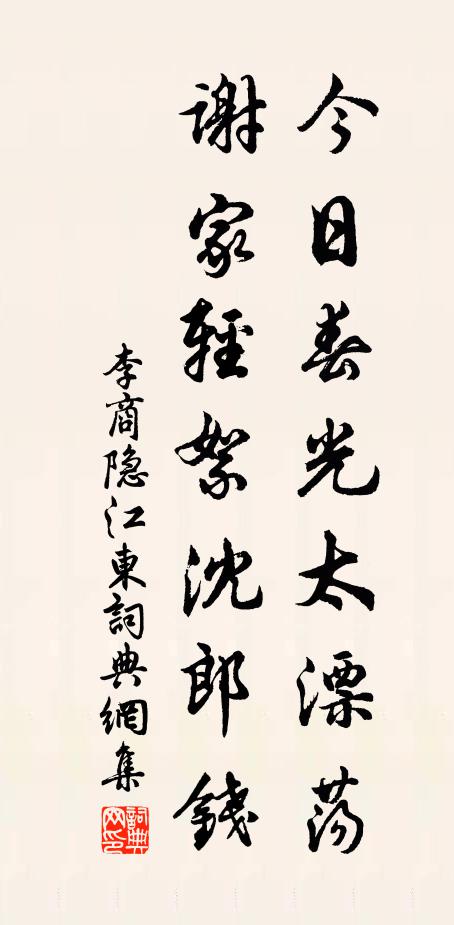 今日春光太漂荡
謝家輕絮沈郎錢
李商隐江東詞典網集
詞典网印